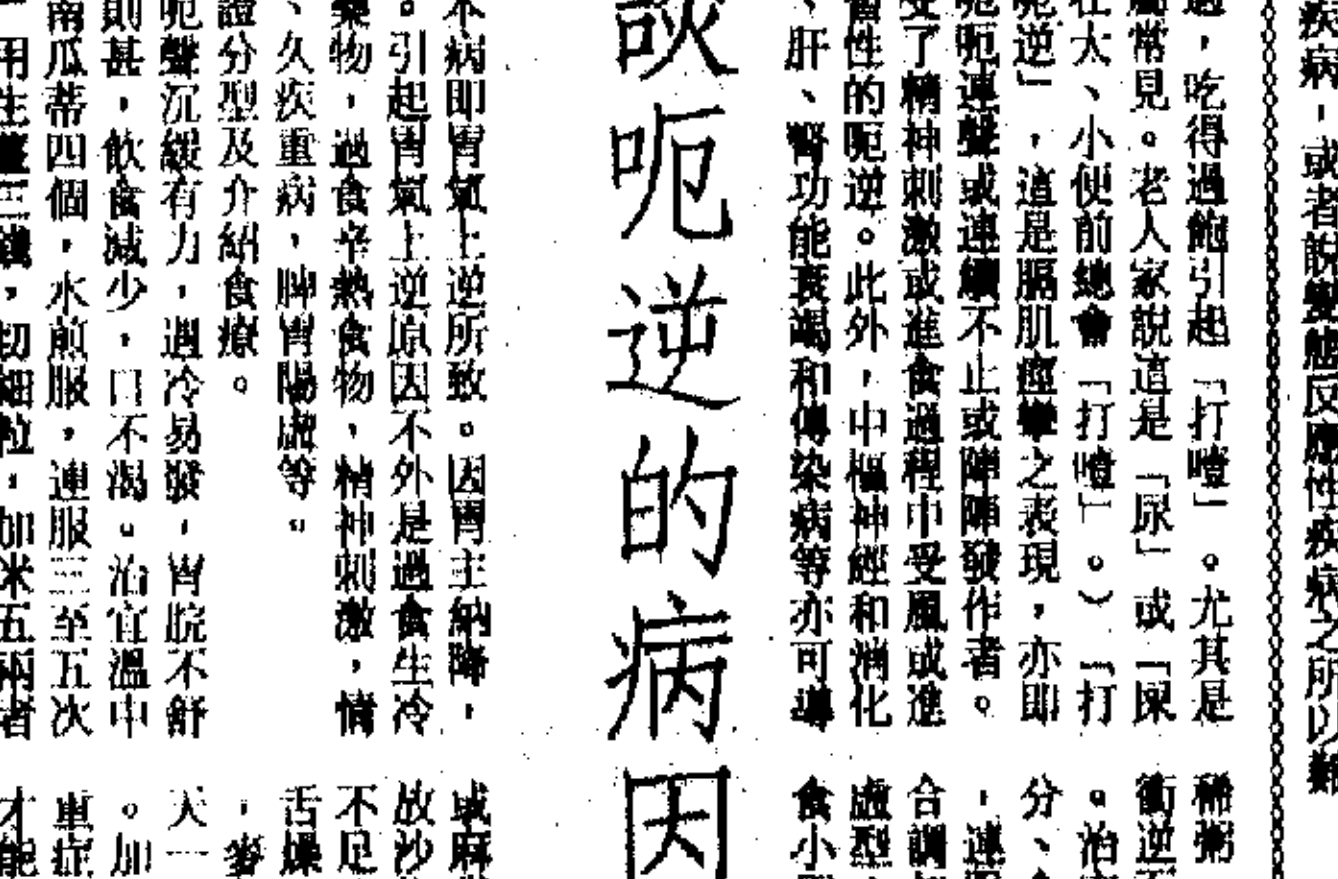 疾病,或者說變態反應性疾病之所以難
過,吃得過飽引起「打噎」。尤其是
屬常見。老人家說這是「尿」或「屎
在大、小便前總會「打噎」。)「打
呃逆」,這是膈肌痙攣之表現,亦即
呃呃連聲或連續不止或陣陣發作者。
受了精神刺激或進食過程中受風或進
暫性的呃逆。此外,中樞神經和消化
、肝、腎功能衰竭和傳染病等亦可導
談呃逆的病因
不病即胃氣上逆所致。因胃主納降,
。引起胃氣上逆原因不外是過食生冷
藥物,過食辛熱食物,精神刺激,情
、久疾重病,脾胃陽虛等。
證分型及介紹食療。
呃聲沉緩有力,遇冷易發,胃脘不舒
則甚,飲食減少,口不渴。治宜溫中
南瓜蒂四個,水煎服,連服三至五次
用生薑三錢,切細粒,加米五兩煮
稀粥
衝逆
。治
分、
,連
合調
虛型
食小
或麻
故沙
不足
舌燥
,麥
天一
。加
重症
才能